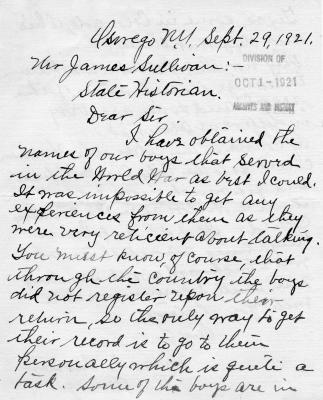 Oswego N.Y. Sept. 29, 1921.
Mr James Sullivan:-
DIVISION OF
OCT 1 - 1921
ARCHIVES AND HISTORY
State Historian.
Dear Sir.
I have obtained the
names of our boys that served
in the World War as best I could.
It was impossible to get any
experiences from them as they
were very reticient about talking.
You must know, of course that
through the country the boys
did not register upon their
return, so the only way to get
their record is to go to them
personally which is quite a
task. Some of the boys are in